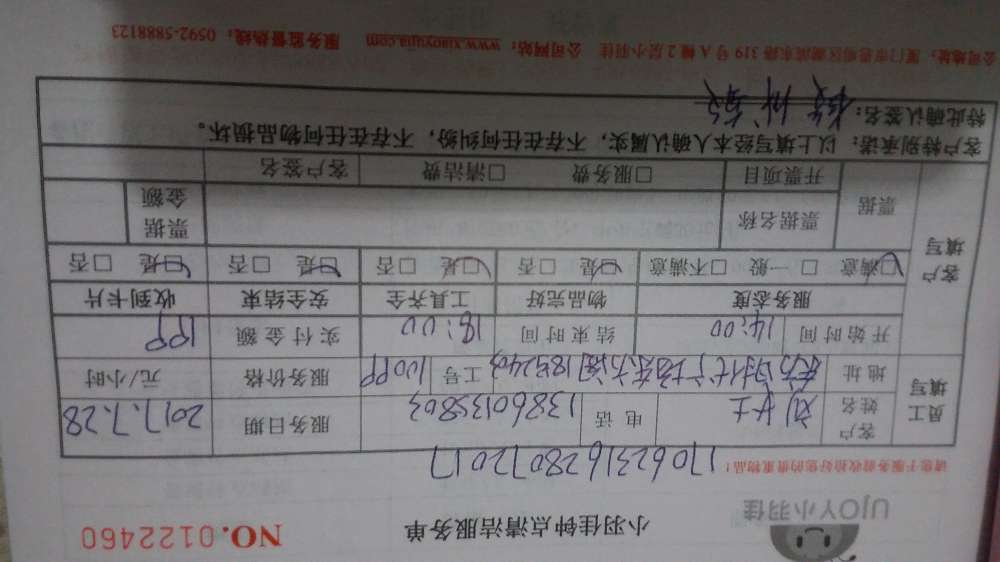 UJOY小羽佳
小羽佳钟点清洁服务单
NO.0122460
请您于服务前收拾好您的贵重物品!
1706231628072017
员工填写
客户姓名 刘女士 电话 13860135803 服务日期 2017.7.28
地址 工号 100PP 服务价格 元/小时
开始时间 14:00 结束时间 18:00 实付金额 1PP
客户填写
服务态度 物品完好 工具齐全 安全结束 收到卡片
☑满意 □一般 □不满意 ☑是 □否 ☑是 □否 ☑是 □否 ☑是 □否
票据 票据名称 票据金额
开票项目 □服务费 □清洁费 客户签名
客户特别承诺:以上填写经本人确认属实,不存在任何纠纷,不存在任何物品损坏。
特此确认签名:
公司地址:厦门市思明区湖滨东路 319 号 A 幢 2 层小羽佳 公司网站:www.xiaoyujia.com 服务监督热线:0592-5888123